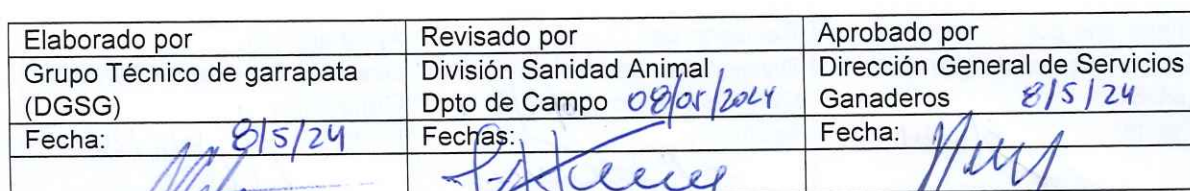 Elaborado por
Revisado por
Aprobado por
Grupo Técnico de garrapata
(DGSG)
División Sanidad Animal
Dpto de Campo 08/05/2024
Dirección General de Servicios
Ganaderos 8/5/24
Fecha: 8/5/24
Fechas:
Fecha: